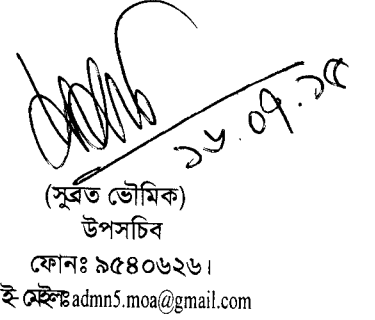 ১৬.০৭.১৫
(সুব্রত ভৌমিক)
উপসচিব
ফোনঃ ৯৫৪০৬২৬।
ই মেইলঃ admn5.moa@gmail.com